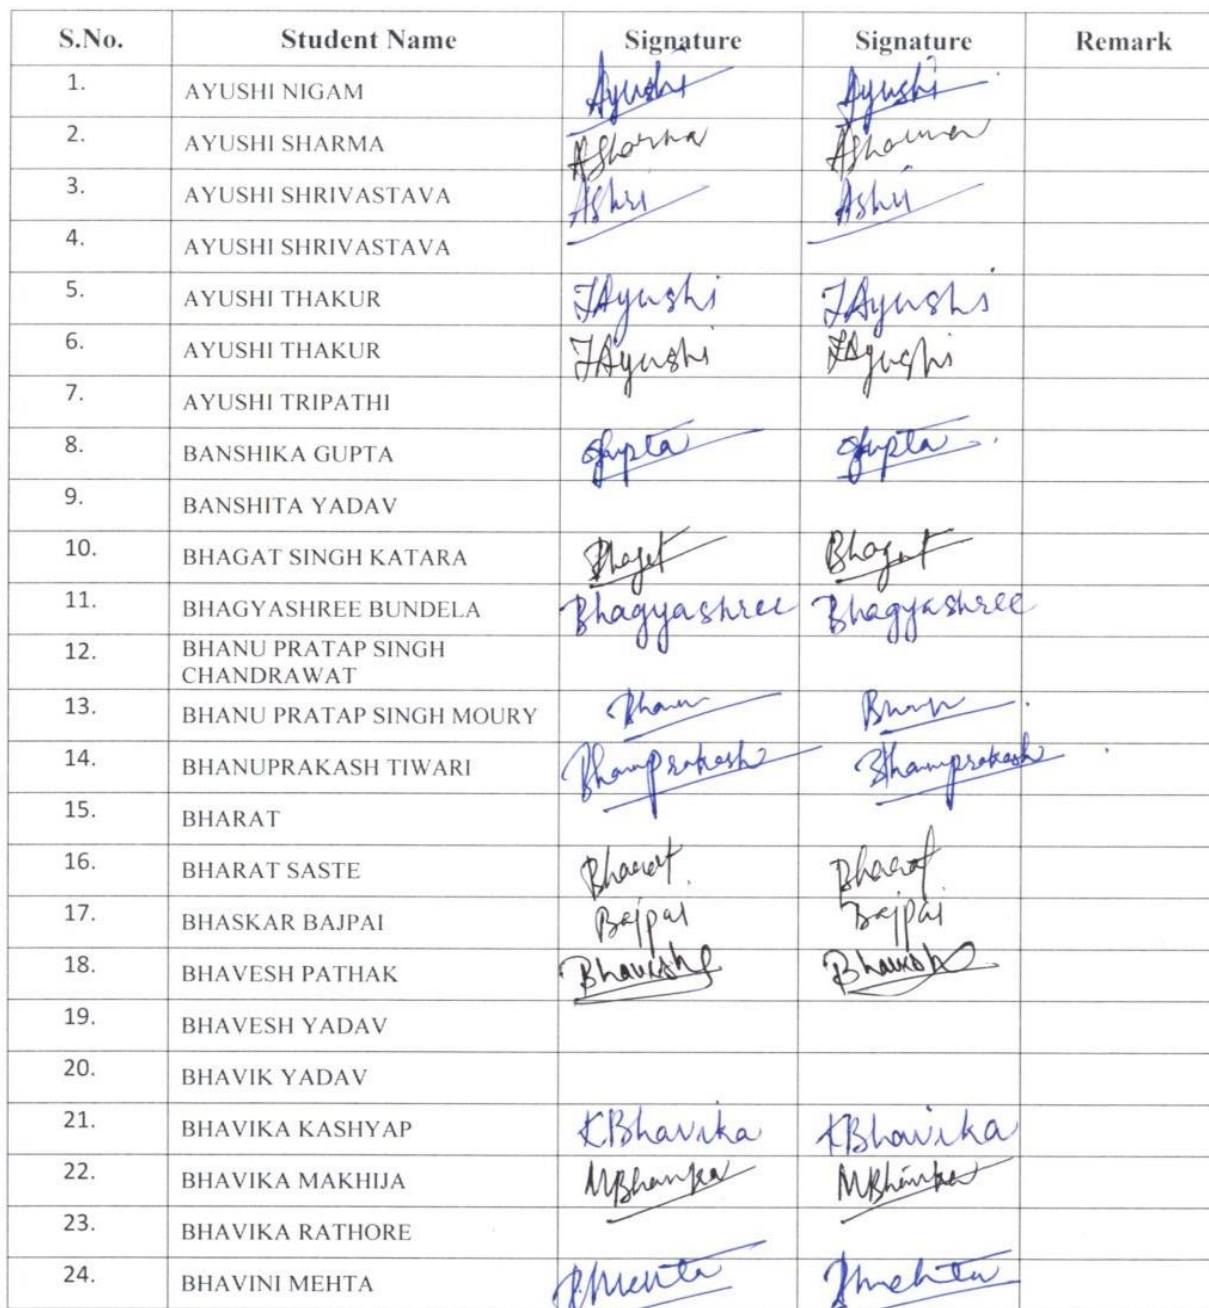 S.No. Student Name Signature Signature Remark
1. AYUSHI NIGAM Ayushi Ayushi
2. AYUSHI SHARMA ASharma ASharma
3. AYUSHI SHRIVASTAVA AShri AShri
4. AYUSHI SHRIVASTAVA
5. AYUSHI THAKUR TAyushi TAyushi
6. AYUSHI THAKUR TAyushi TAyushi
7. AYUSHI TRIPATHI
8. BANSHIKA GUPTA Gupta Gupta
9. BANSHITA YADAV
10. BHAGAT SINGH KATARA Bhagat Bhagat
11. BHAGYASHREE BUNDELA Bhagyashree Bhagyashree
12. BHANU PRATAP SINGH
CHANDRAWAT
13. BHANU PRATAP SINGH MOURY Bhanu Bhanu
14. BHANUPRAKASH TIWARI Bhanuprakash Bhanuprakash
15. BHARAT
16. BHARAT SASTE Bharat Bharat
17. BHASKAR BAJPAI Bajpai Bajpai
18. BHAVESH PATHAK Bhavesh Bhavesh
19. BHAVESH YADAV
20. BHAVIK YADAV
21. BHAVIKA KASHYAP KBhavika KBhavika
22. BHAVIKA MAKHIJA MBhavika MBhavika
23. BHAVIKA RATHORE
24. BHAVINI MEHTA Bmehta Bmehta